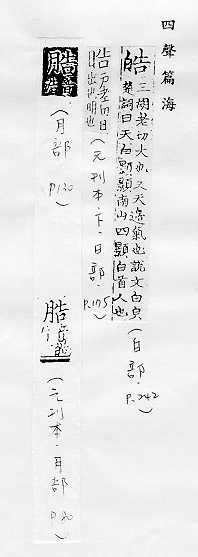 四聲篇海
皓三胡老切大也又天邊氣也說文白皃
楚詞曰天白顥顥南山四顥白首人也
(白部.P.242)
晧 胡老切日
出也明也
(元刊本.下.日部.P.175)
(月部 P.130)
(元刊本.月部 P.80)